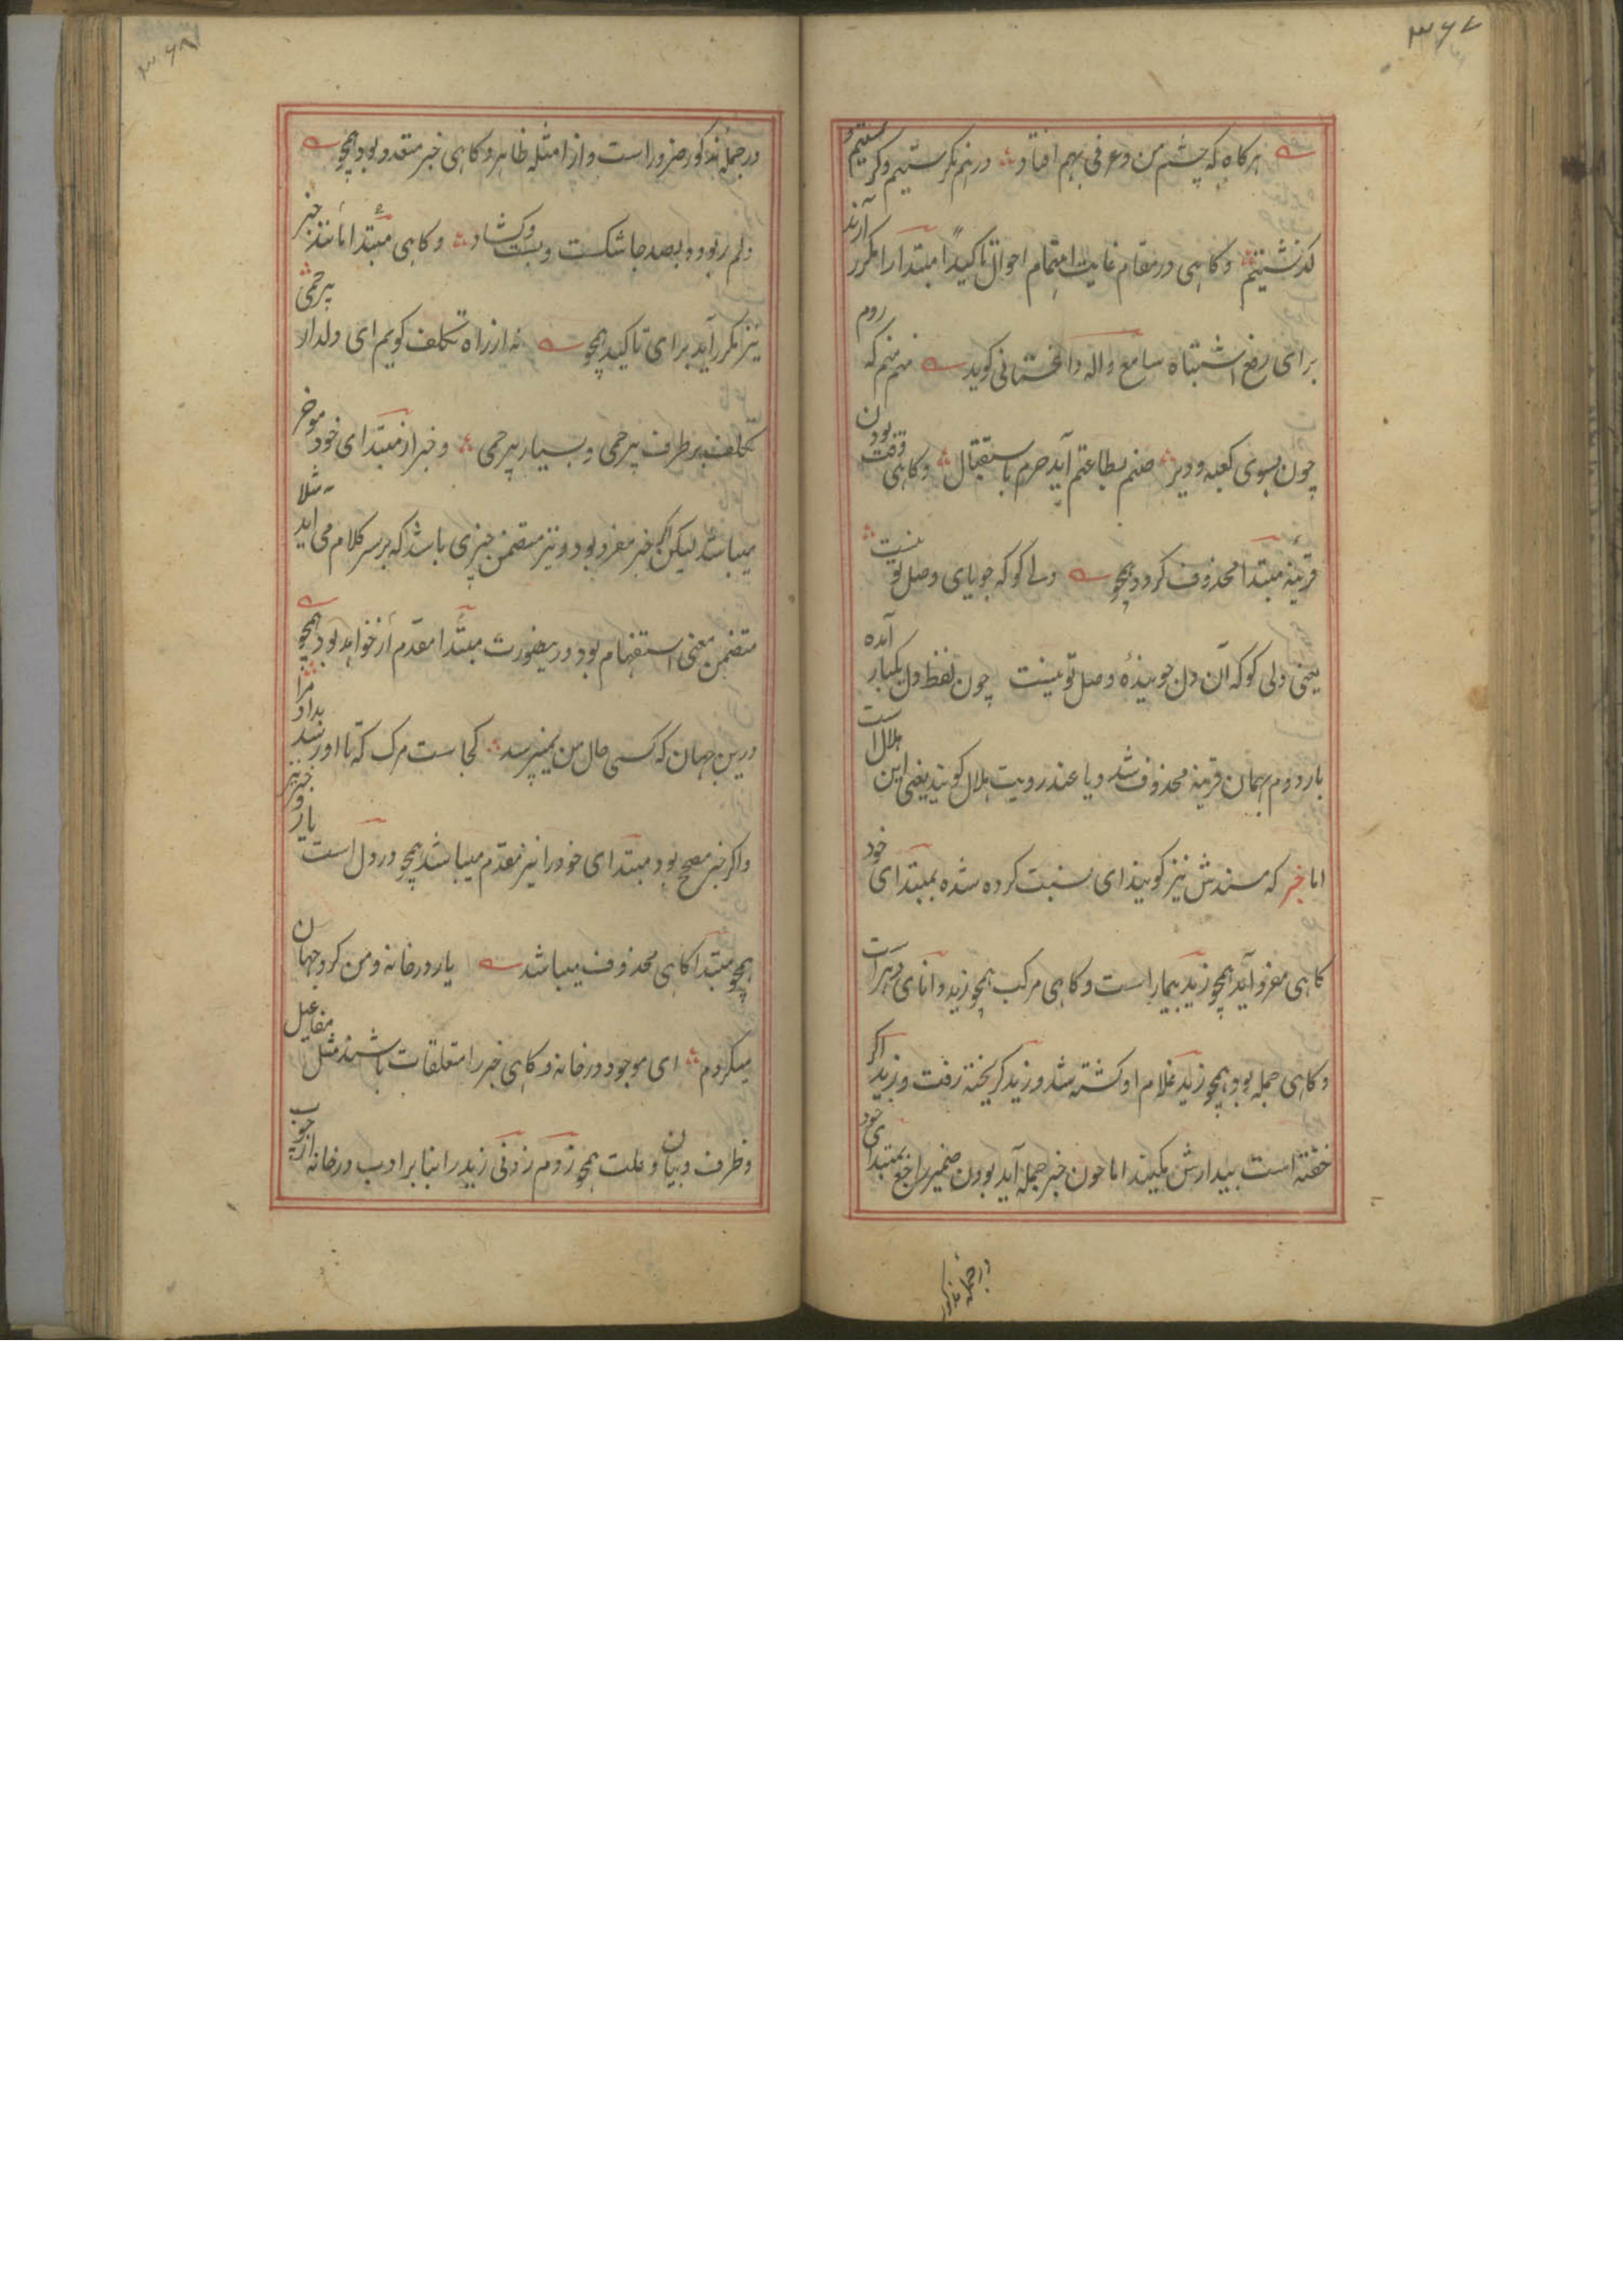 ۳۶۷
هرگاه که چشم من و عرفی بهم افتاد در هم نگرستیم و گرستیم و
گذشتیم و گاهی در مقام غایت اهتمام احوال تاکیداً مبتدا را مکرر آرند
برای رفع اشتباه سامع واله داغستانی گوید منم منم که روم
چون بسوی کعبه و دیر صنم بطاعتم آید حرم باستقبال و گاهی وقت بودن
قرینه مبتدا محذوف گردد همچو دلے کو که جویای وصل تو نیست
یعنی دلی کو که آن دل جویندهٔ وصل تو نیست چون لفظ دل یکبار آمده
بار دوم بهمان قرینه محذوف شد و یا عند رویت هلال گویند یعنی این هلال است
اما خبر که مسندش نیز گویند ای نسبت کرده شده بمبتدای خود
گاهی مفرد آید همچو زید بیمار است و گاهی مرکب همچو زید دانای دهر است
و گاهی جمله بود همچو زید غلام او کشته شد و زید گریخته رفت و زید اگر
خفته است بیدارش مکنید اما چون خبر جمله آید بودن ضمیر راجع بمبتدای خود
در جمله مذکور
۳۶۸
در جمله مذکور ضرور است و از امثله ظاهر و گاهی خبر متعدد بود همچو
دلم ربود و بصد جا شکست و بست و کشاد و گاهی مبتدا مانند خبر
نیز مکرر آید برای تاکید همچو نه از راه تکلف گویم ای دلدار بیرحمی
تکلف برطرف بیرحمی و بسیار بیرحمی و خبر از مبتدای خود موخر
میباشد لیکن اگر خبر مفرد بود و نیز متضمن چیزی باشد که بر سر کلام می آید مثلا
متضمن معنی استفهام بود درینصورت مبتدا مقدم از خواهد بود همچو
درین جهان که کسی حال من نمیپرسد کجاست مرگ که تا او رسد بداد مرا
و اگر خبر مصحح بود مبتدای خود را نیز مقدم میباشد همچو در دل است یار و خبر نیز
همچو مبتدا گاهی محذوف میباشد یار در خانه و من گرد جهان
میگردم ای موجود در خانه و گاهی خبر را متعلقات باشند مثل مفاعیل
و ظرف و بیان و علت همچو زدم زدنی زید را بنا بر ادب در خانه از چوب